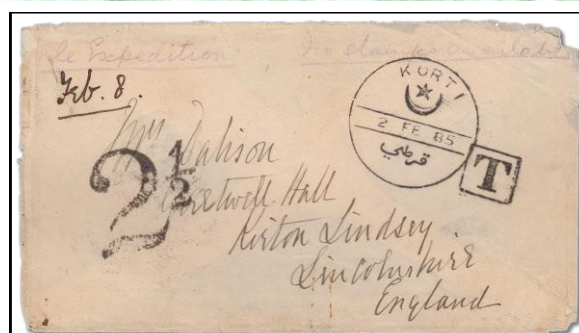 le Expedition No stamps available
Feb. 8.
KORTI
2 FE 85
قرطي
T
2 1/2
Mrs Dalison
Hall
Kirton Lindsey
Lincolnshire
England